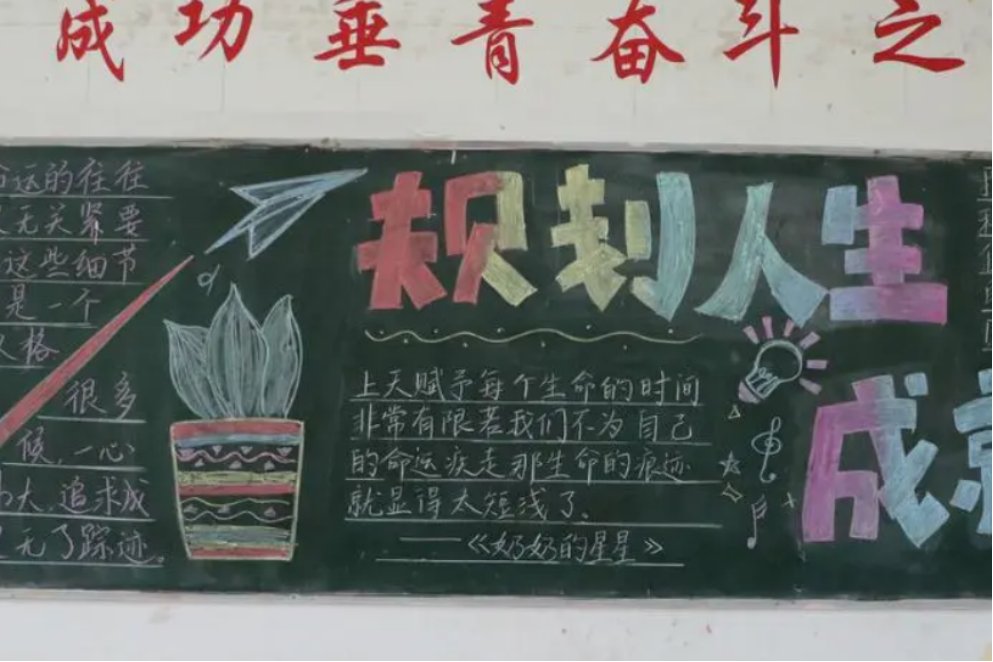 成功垂青奋斗之
运的往往
无关紧要
这些细节
是一个
人格
很多
候，一心
大，追求成
无了踪迹。
规划人生
上天赋予每个生命的时间
非常有限若我们不为自己
的命运疾走那生命的痕迹
就显得太短浅了、
——《奶奶的星星》
成就